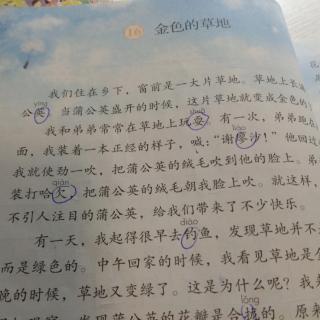 16 金色的草地
我们住在乡下，窗前是一大片草地。草地上长
yīng
公英。当蒲公英盛开的时候，这片草地就变成金色的
shuǎ
我和弟弟常常在草地上玩耍。有一次，弟弟跑在
liào
面，我装着一本正经的样子，喊：“谢廖沙！”他回过
我就使劲一吹，把蒲公英的绒毛吹到他的脸上。弟
qiàn
装打哈欠，把蒲公英的绒毛朝我脸上吹。就这样，
不引人注目的蒲公英，给我们带来了不少快乐。
diào
有一天，我起得很早去钓鱼，发现草地并不
而是绿色的。中午回家的时候，我看见草地是
晚的时候，草地又变绿了。这是为什么呢？我
lǒng
发现蒲公英的花瓣是合拢的。原